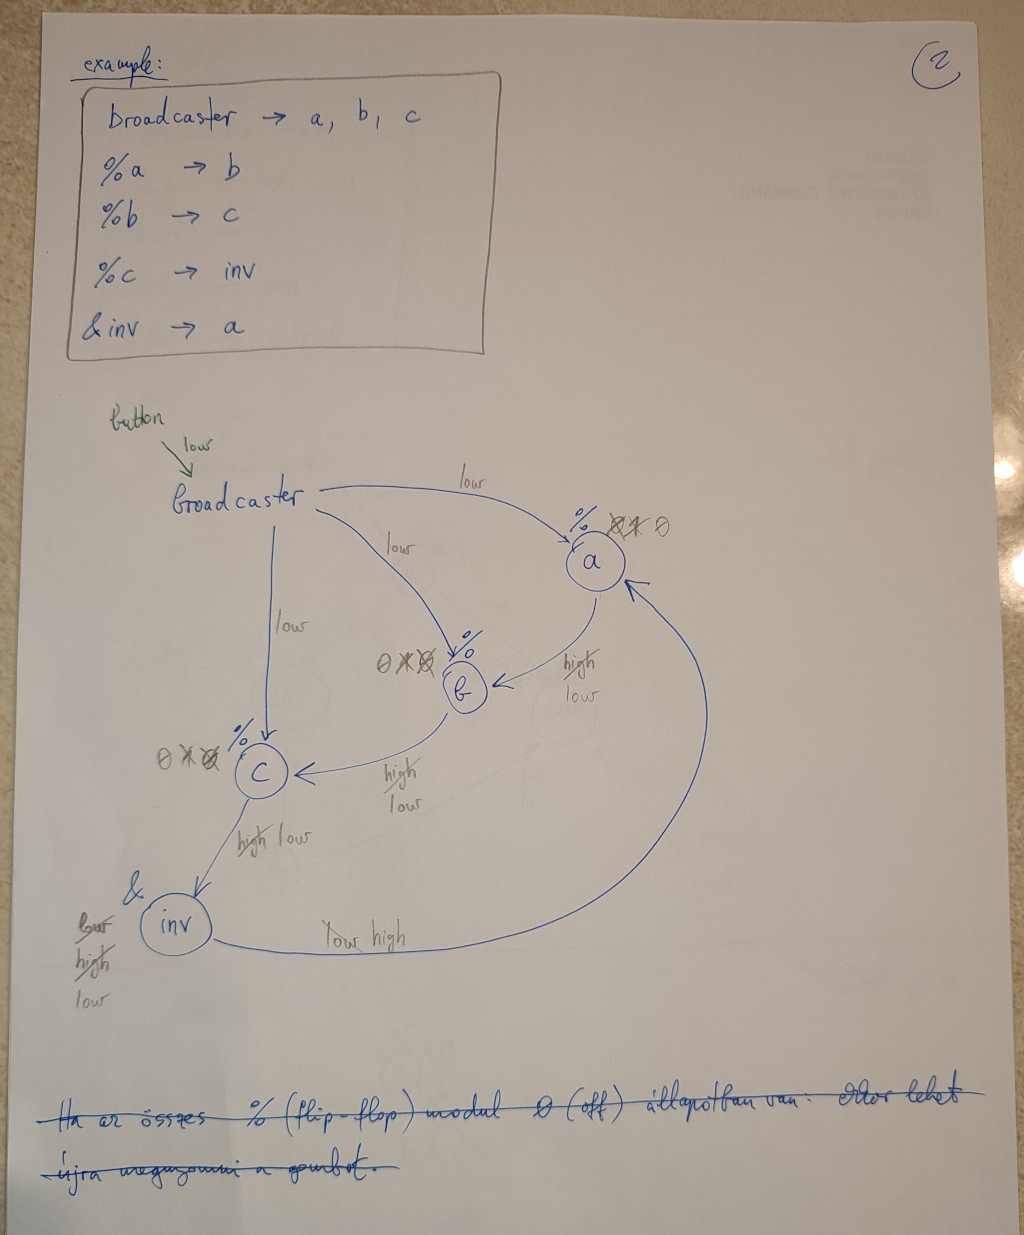 example:
2
broadcaster → a, b, c
%a → b
%b → c
%c → inv
&inv → a
button
low
broadcaster
low
low
low
% 0 1 0
a
0 1 0 %
b
high
low
0 1 0 %
c
high
low
high low
&
inv
low
high
low
low high
Ha az összes % (flip-flop) modul 0 (off) állapotban van: akkor lehet
újra megnyomni a gombot.